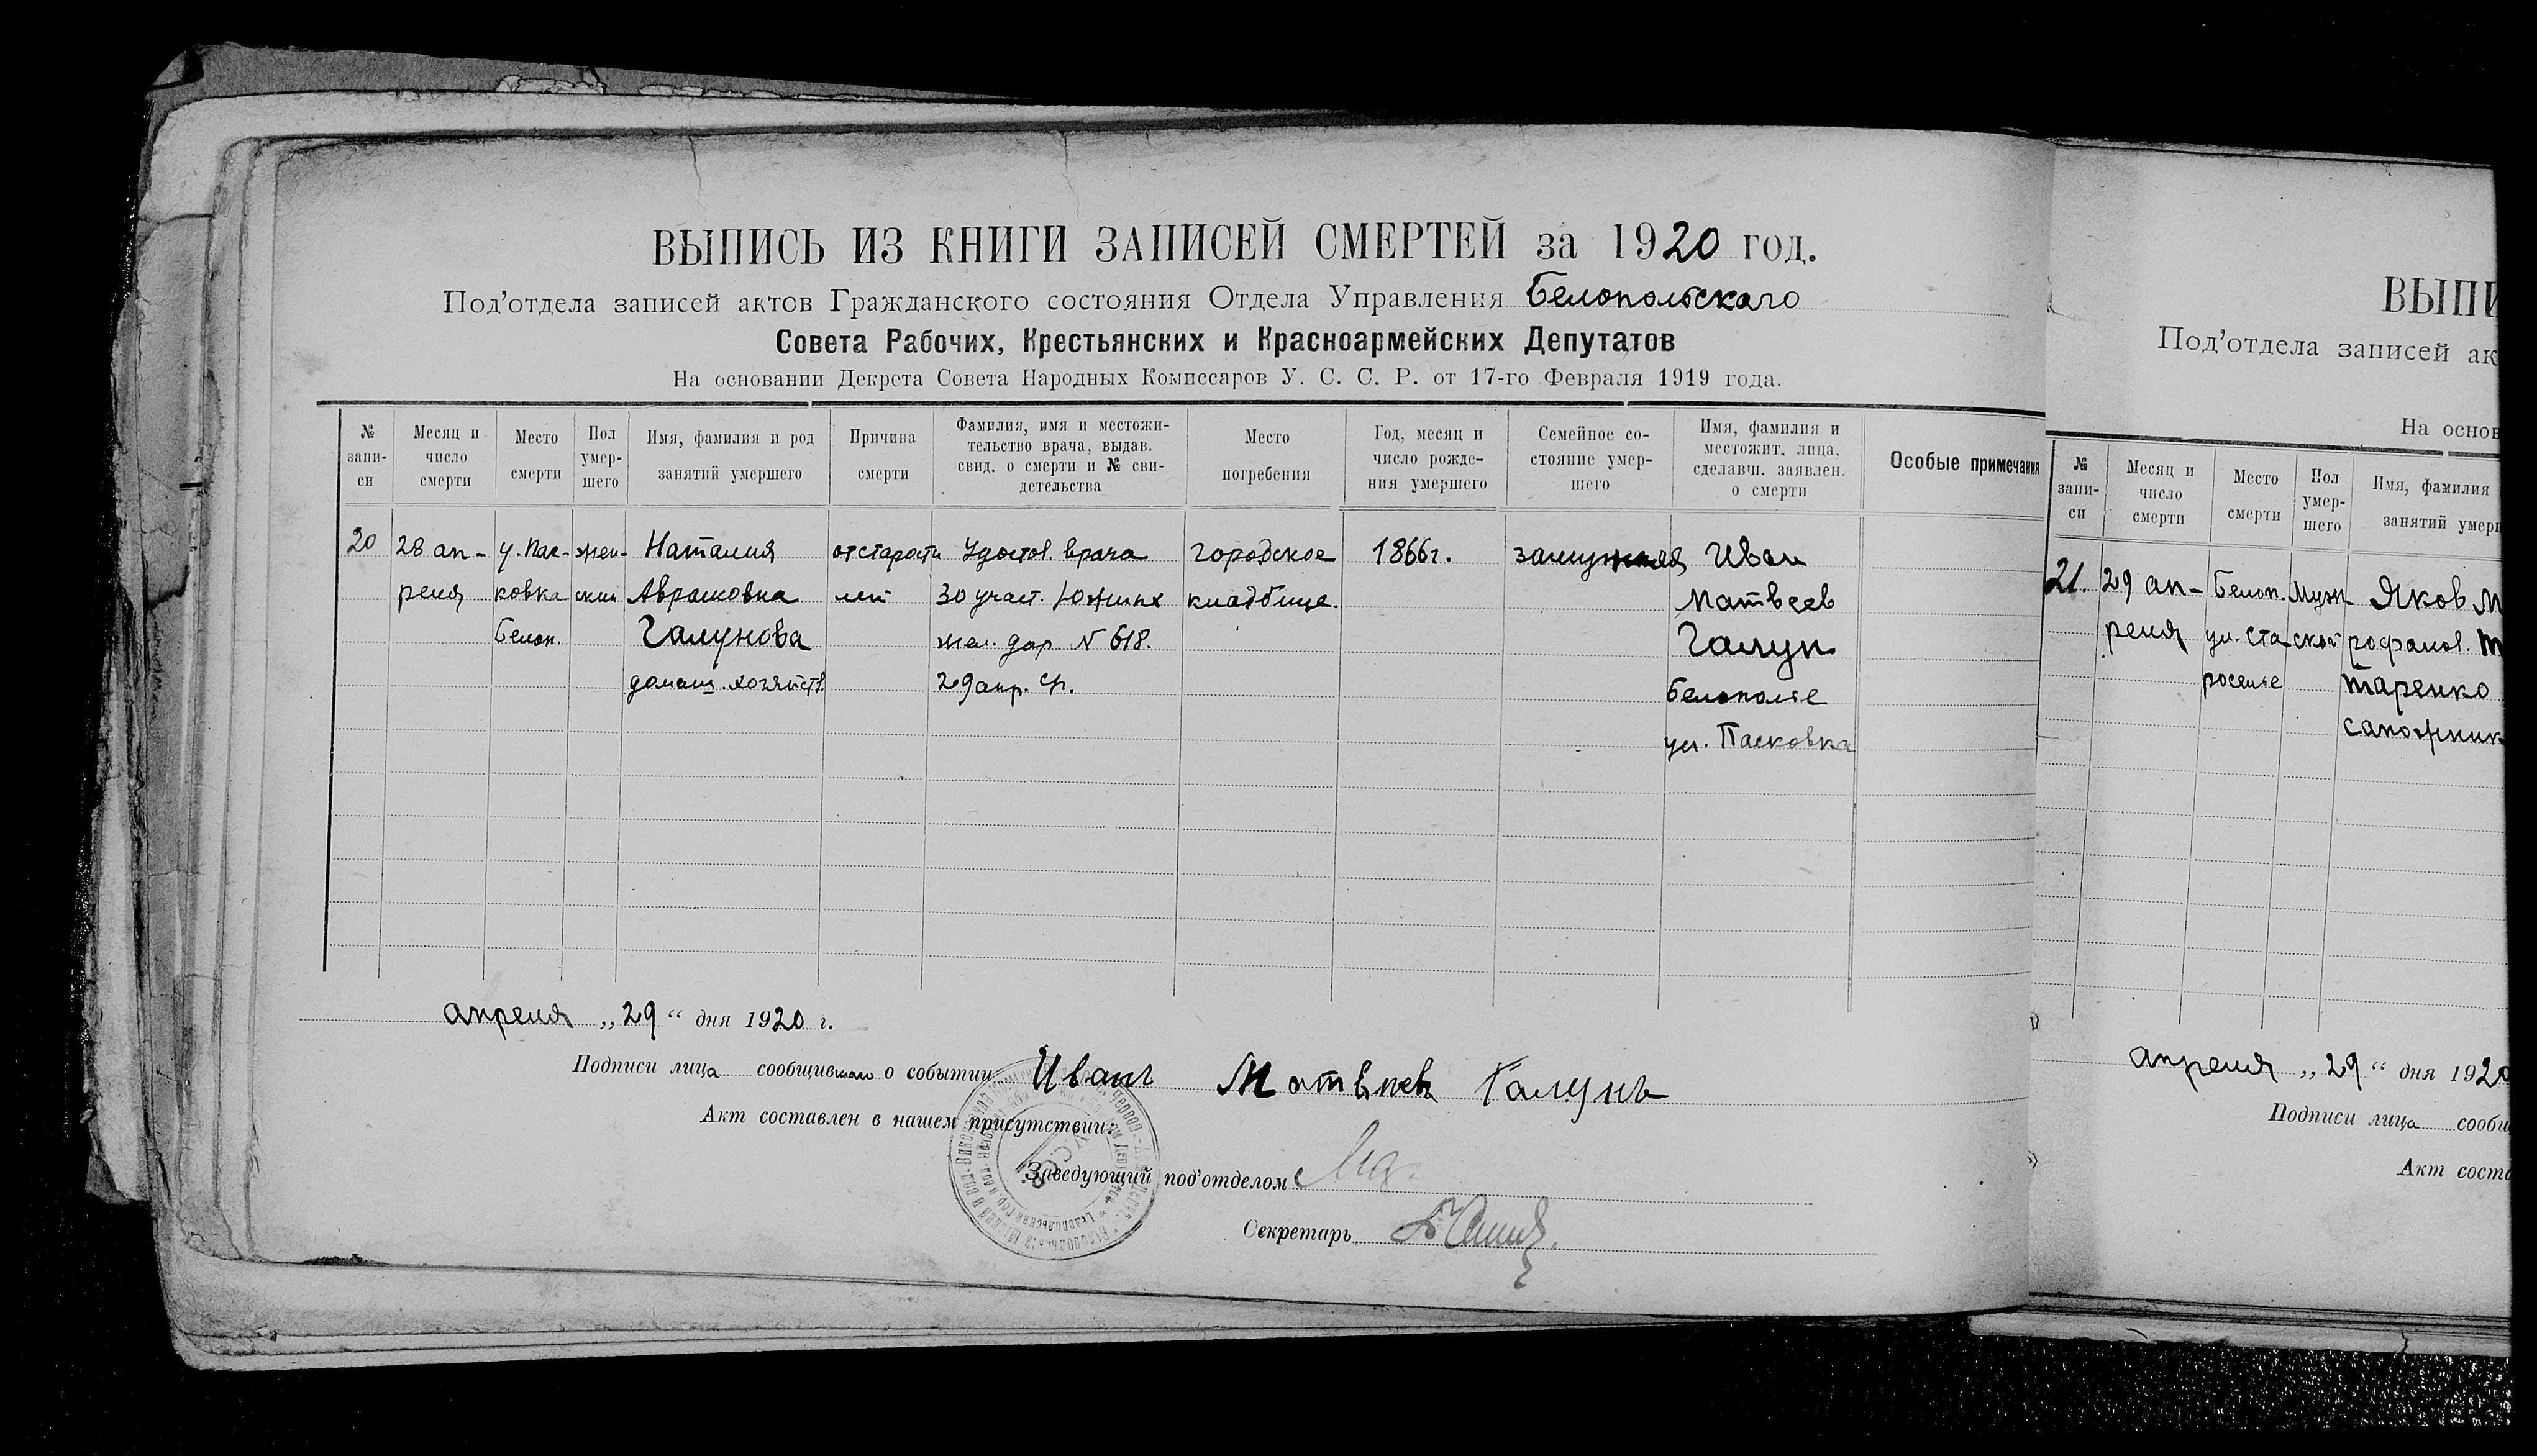 ВЫПИСЬ ИЗ КНИГИ ЗАПИСЕЙ СМЕРТЕЙ за 1920 год.
Под'отдела записей актов Гражданского состояния Отдела Управления Белопольскаго
Совета Рабочих, Крестьянских и Красноармейских Депутатов
На основании Декрета Совета Народных Комиссаров У. С. С. Р. от 17-го Февраля 1919 года.
№ запи-
си
Месяц и
число
смерти
Место
смерти
Пол
умер-
шего
Имя, фамилия и род
занятий умершего
Причина
смерти
Фамилия, имя и местожи-
тельство врача, выдав.
свид. о смерти и № сви-
детельства
Место
погребения
Год, месяц и
число рожде-
ния умершего
Семейное со-
стояние умер-
шего
Имя, фамилия и
местожит. лица,
сделавш. заявлен.
о смерти
Особые примечания
20
28 ап-
реля
у. Пас-
ковка
Белоп.
жен-
ский
Наталия
Авраамовна
Галунова
домаш. хозяйств.
от старости
лет
Удостов. врача
30 участ. Южных
жел. дор. № 618.
29 апр. с/г.
городское
кладбище.
1866г.
замужняя
Иван
Матвеев
Галун
Белополье
ул. Пасковка
апреля „29“ дня 1920 г.
Подписи лица сообщившаго о событии Иванъ Матвѣевъ Галунъ
Акт составлен в нашем присутствии:
Заведующий под'отделом
Секретарь
ВЫПИ
Под'отдела записей ак
На основ
№
запи-
си
Месяц и
число
смерти
Место
смерти
Пол
умер-
шего
Имя, фамилия
занятий умерш
21.
29 ап-
реля
Белоп.
ул. Ста
роселье
Муж-
ской
Яков М
рофанов. Т
таренко
сапожник
апреля „29“ дня 1920
Подписи лица сообщ
Акт соста